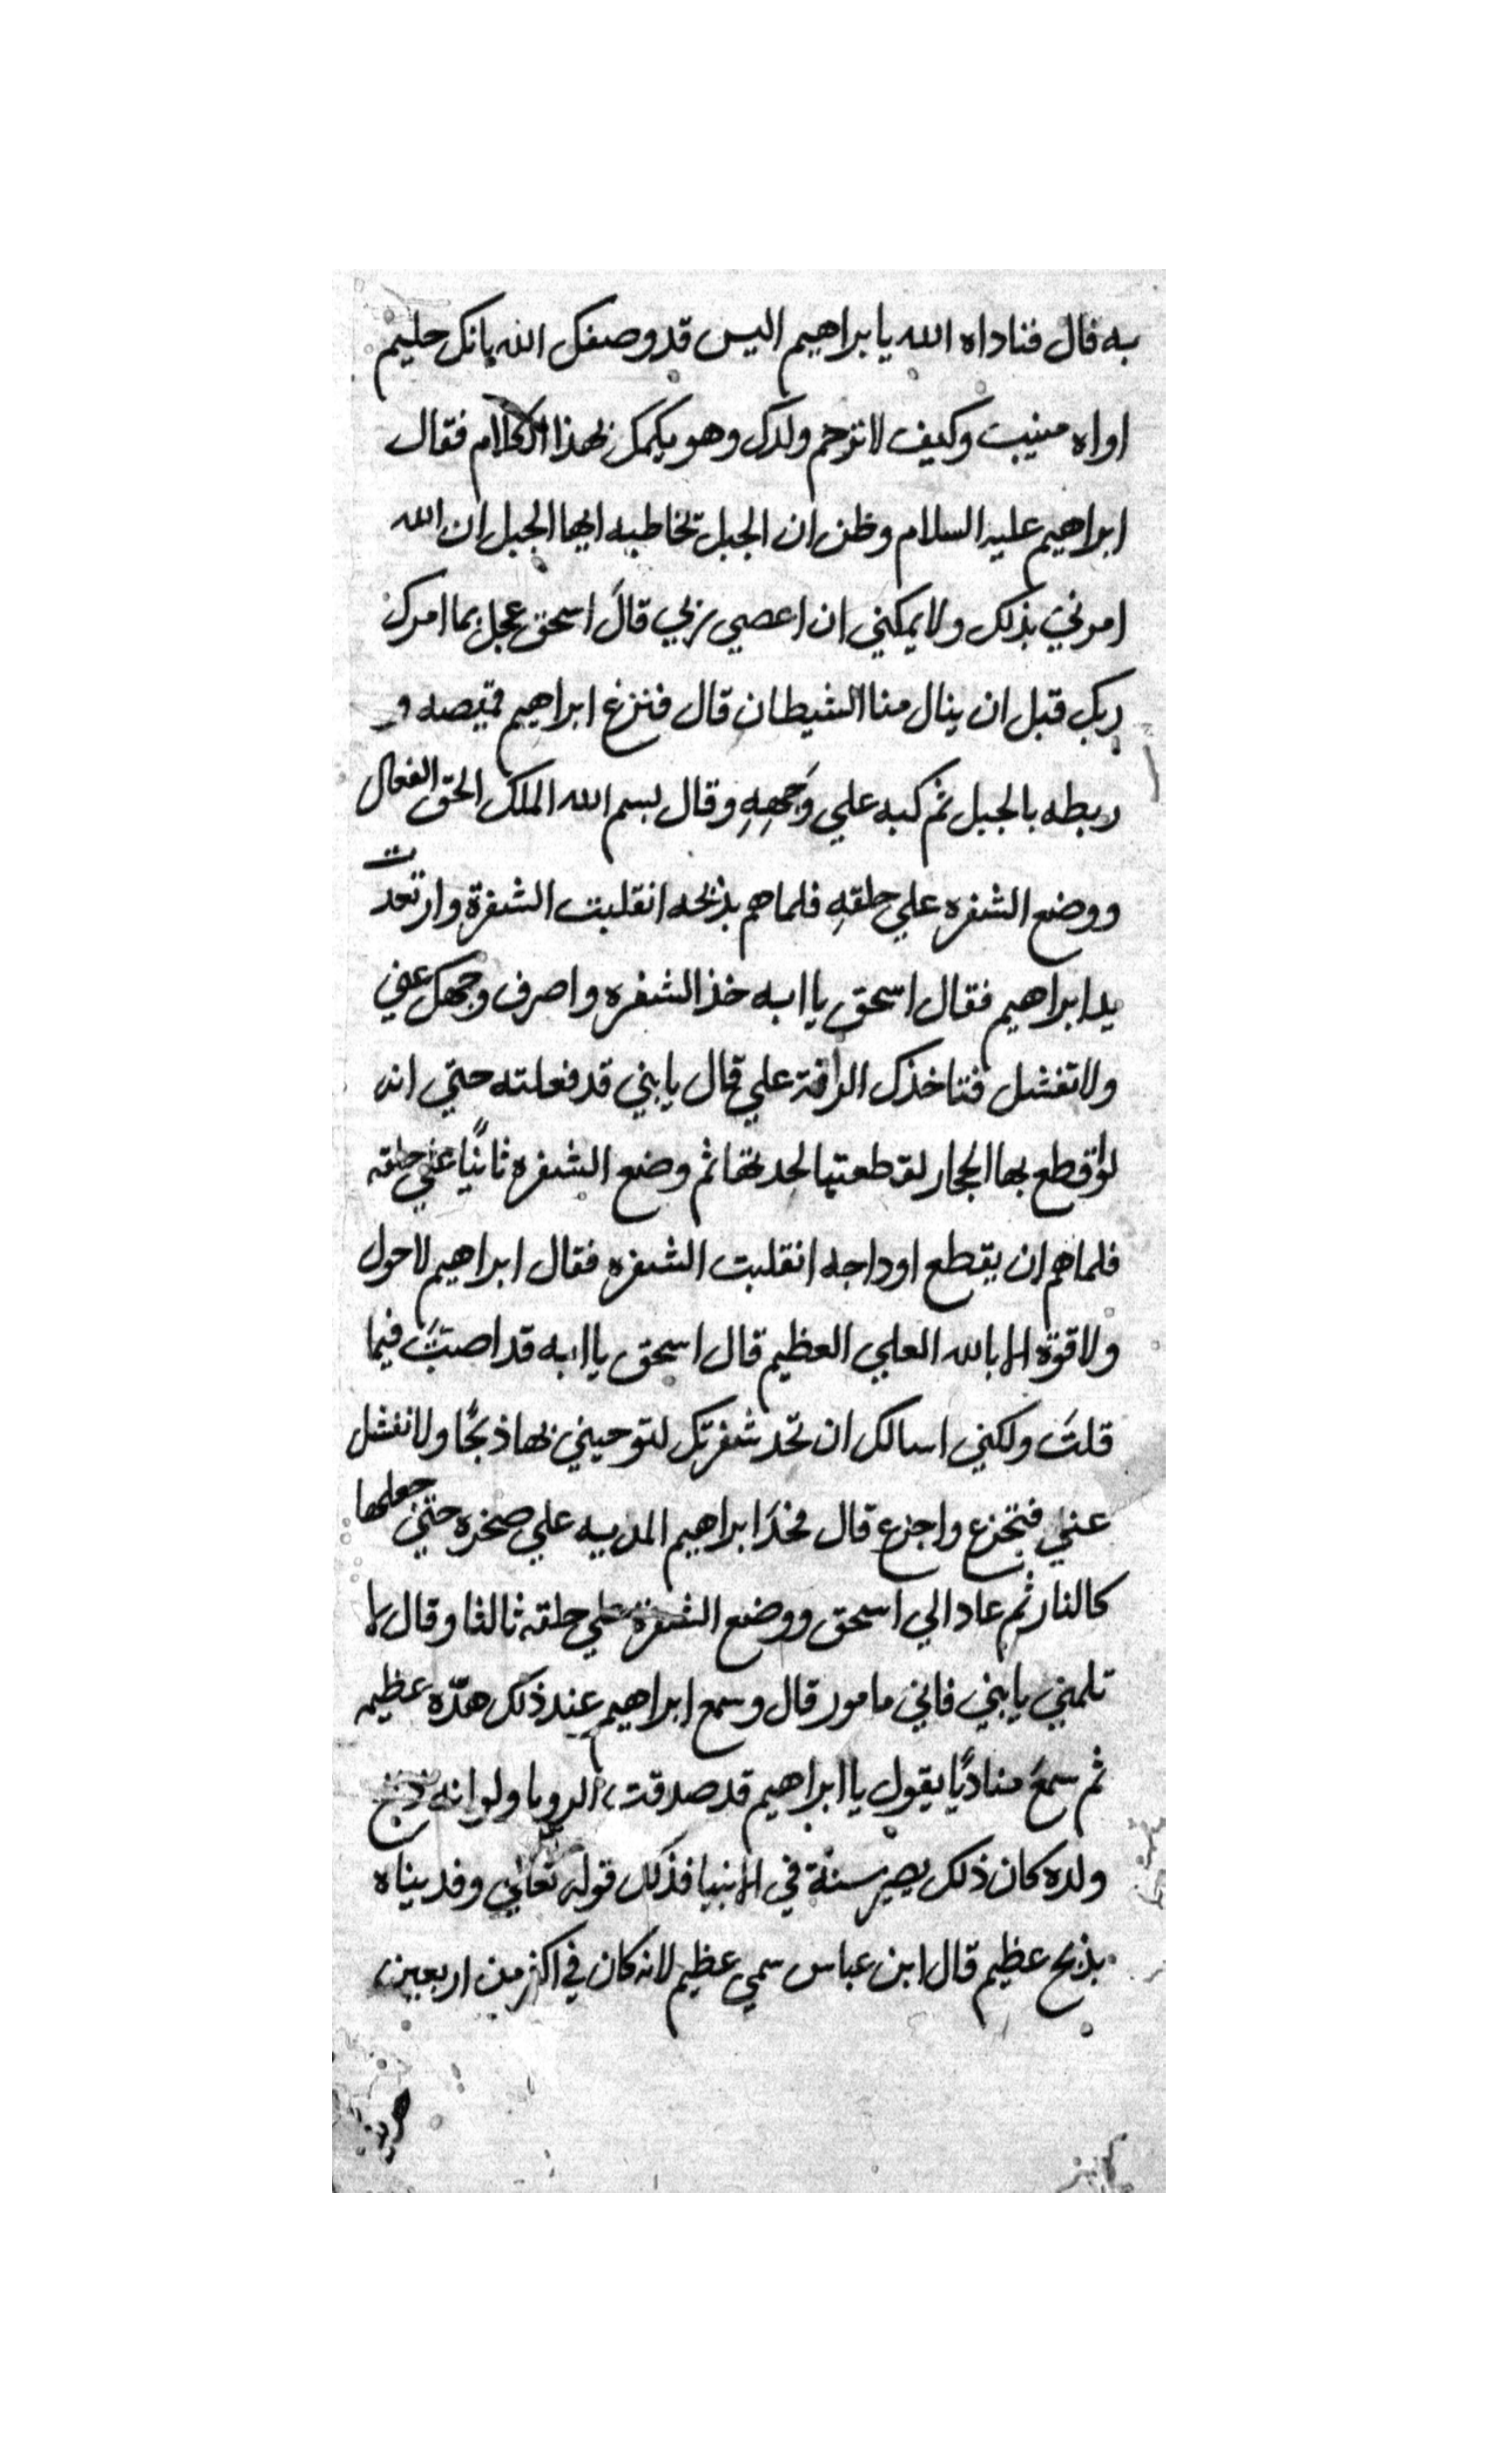 به قال فناداه الله يا براهيم اليس قد وصفك الله بانك حليم
اواه منيب وكيف لا ترحم ولدك وهو يكلمك بهذا الكلام فقال
ابراهيم عليه السلام وظن ان الجبل تخاطبه ايها الجبل ان الله
امرني بذلك ولا يمكنني ان اعصي ربي قالَ اسحق عجل بما امرك
ربك قبل ان ينال منا الشيطان قال فنزع ابراهيم قميصه و
ربطه بالحبل ثم كبه علي وَجههِ وقال بسم الله الملك الحق الفعال
ووضع الشفره علي حلقهِ فلما هم بذبحه انقلبت الشفرة وارتعدت
يد ابراهيم فقال اسحق يا ابه خذ الشفره واصرف وجهك عني
ولا تفشل فتاخذك الرافة علي قال يا بني قد فعلته حتي انه
لو اقطع بها الحجار لقطعتها لحدتها ثم وضع الشفره ثانيًا علي حلقه
فلما هم ان يقطع اوداجه انقلبت الشفره فقال ابراهيم لا حول
ولا قوة الا بالله العلي العظيم قال اسحق يا ابه قد اصبتَ فيما
قلتَ ولكني اسالك ان تحد شفرتك لتوحيني بها ذبحًا ولا تفشل
عني فتجزع واجزع قال فحدَ ابراهيم المديه علي صخره حتي جعلها
كالنار ثم عاد الي اسحق ووضع الشفرة علي حلقه ثالثا وقال لا
تلمني يا بني فاني مامور قال وسمع ابراهيم عند ذلك هدّه عظيمه
ثم سمعَ مناديًا يقول يا ابراهيم قد صدقت الرويا ولو انه ذبح
ولده كان ذلك يصير سنة في الانبيا فذلك قوله تعالي وفديناه
بذبح عظيم قال ابن عباس سمي عظيم لانه كان في اكثر من اربعين